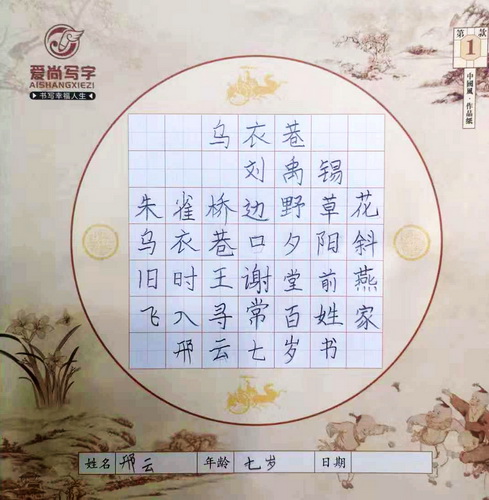 爱尚写字
AISHANGXIEZI
书写幸福人生
第1款
中國風·作品紙
乌衣巷
刘禹锡
朱雀桥边野草花
乌衣巷口夕阳斜
旧时王谢堂前燕
飞入寻常百姓家
邢云七岁书
姓名 邢云 年龄 七岁 日期